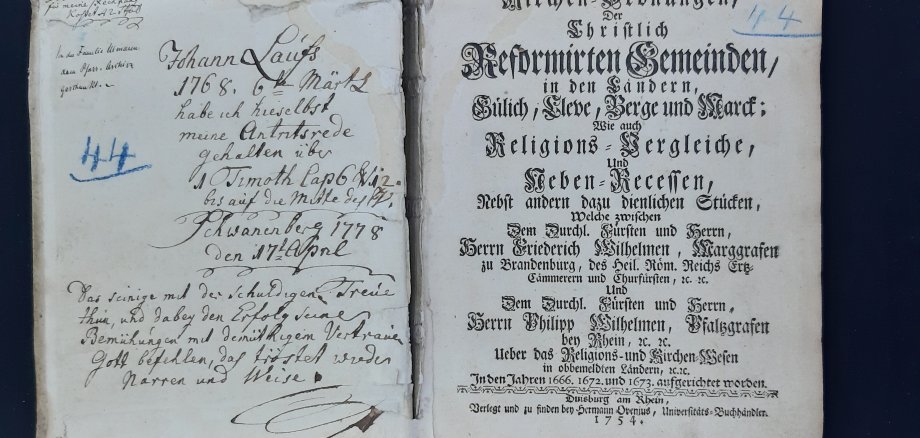 Kostet
In die Familie
dem Pfarr-Archiv
geschenkt.
44
Johann Laufs
1768. 6t März
habe ich hieselbst
meine Antritsrede
gehalten über
1 Timoth Cap 6 12.
bis auf die Mitte des
Schwanenberg 1778
den 17t April
Das seinige mit der schuldigen Treue
thun, und dabey den Erfolg seiner
Bemühungen mit demüthigem Vertrauen
Gott befehlen, das tröstet wieder
Narren und Weise.
44
Kirchen-Ordnungen,
Der
Christlich
Reformirten Gemeinden,
in den Ländern,
Gülich, Cleve, Berge und Marck:
Wie auch
Religions-Vergleiche,
Und
Neben-Recessen,
Nebst andern dazu dienlichen Stücken,
Welche zwischen
Dem Durchl. Fürsten und Herrn,
Herrn Friederich Wilhelmen, Marggrafen
zu Brandenburg, des Heil. Röm. Reichs Ertz-
Cämmerern und Churfürsten, ꝛc. ꝛc.
Und
Dem Durchl. Fürsten und Herrn,
Herrn Philipp Wilhelmen, Pfaltzgrafen
bey Rhein, ꝛc. ꝛc.
Ueber das Religions-und Kirchen-Wesen
in obbemeldten Ländern, ꝛc.ꝛc.
In den Jahren 1666. 1672. und 1673. aufgerichtet worden.
Duisburg am Rhein,
Verlegt und zu finden bey Hermann Ovenius, Universitäts-Buchhändler.
1754.